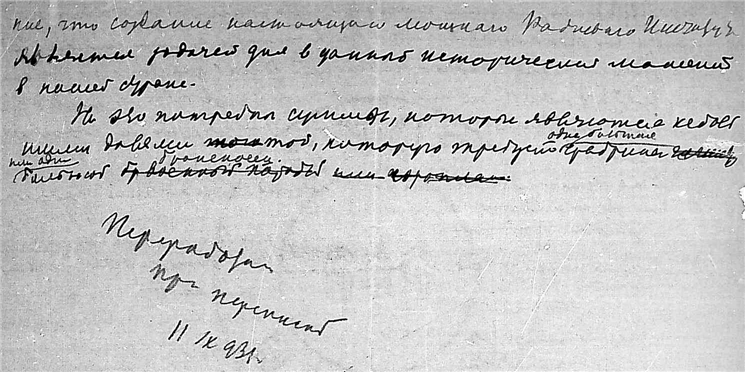 ние, что создание настоящего мощного Радиевого Института
является задачей дня в данный исторический момент
в нашей стране.
На это потребны суммы, которые являются небольшими
долями той, которую требует
одно большое
или один
броненосец.
или
Переработан
при переписке
11 IX 931.